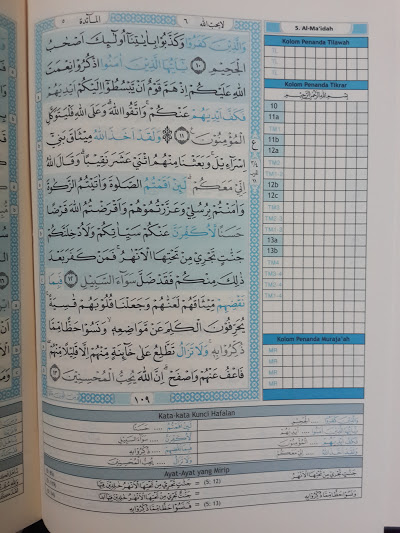 ٥ المائدة
لا يحب الله ٦
وَالَّذِينَ كَفَرُوا وَكَذَّبُوا بِآيَاتِنَا أُولَٰئِكَ أَصْحَابُ
الْجَحِيمِ ١٠ يَا أَيُّهَا الَّذِينَ آمَنُوا اذْكُرُوا نِعْمَتَ
اللَّهِ عَلَيْكُمْ إِذْ هَمَّ قَوْمٌ أَنْ يَبْسُطُوا إِلَيْكُمْ أَيْدِيَهُمْ
فَكَفَّ أَيْدِيَهُمْ عَنْكُمْ وَاتَّقُوا اللَّهَ وَعَلَى اللَّهِ فَلْيَتَوَكَّلِ
الْمُؤْمِنُونَ ١١ وَلَقَدْ أَخَذَ اللَّهُ مِيثَاقَ بَنِي
إِسْرَائِيلَ وَبَعَثْنَا مِنْهُمُ اثْنَيْ عَشَرَ نَقِيبًا وَقَالَ اللَّهُ
إِنِّي مَعَكُمْ لَئِنْ أَقَمْتُمُ الصَّلَاةَ وَآتَيْتُمُ الزَّكَاةَ
وَآمَنْتُمْ بِرُسُلِي وَعَزَّرْتُمُوهُمْ وَأَقْرَضْتُمُ اللَّهَ قَرْضًا
حَسَنًا لَأُكَفِّرَنَّ عَنْكُمْ سَيِّئَاتِكُمْ وَلَأُدْخِلَنَّكُمْ
جَنَّاتٍ تَجْرِي مِنْ تَحْتِهَا الْأَنْهَارُ فَمَنْ كَفَرَ بَعْدَ
ذَٰلِكَ مِنْكُمْ فَقَدْ ضَلَّ سَوَاءَ السَّبِيلِ ١٢ فَبِمَا
نَقْضِهِمْ مِيثَاقَهُمْ لَعَنَّاهُمْ وَجَعَلْنَا قُلُوبَهُمْ قَاسِيَةً
يُحَرِّفُونَ الْكَلِمَ عَنْ مَوَاضِعِهِ وَنَسُوا حَظًّا مِمَّا
ذُكِّرُوا بِهِ وَلَا تَزَالُ تَطَّلِعُ عَلَىٰ خَائِنَةٍ مِنْهُمْ إِلَّا قَلِيلًا مِنْهُمْ
فَاعْفُ عَنْهُمْ وَاصْفَحْ إِنَّ اللَّهَ يُحِبُّ الْمُحْسِنِينَ ١٣
١٠٩
5. Al-Ma'idah
Kolom Penanda Tilawah
Kolom Penanda Tikrar
بسم الله الرحمن الرحيم
10
11a
TM1
11b
12a
TM2
12b
12c
TM3
13a
13b
TM4
Kolom Penanda Muraja'ah
MR
MR
MR
MR
Kata-kata Kunci Hafalan
Ayat-Ayat yang Mirip
جَنَّاتٍ تَجْرِي مِنْ تَحْتِهَا الْأَنْهَارُ (5: 12) =
وَنَسُوا حَظًّا مِمَّا ذُكِّرُوا بِهِ (5: 13) =